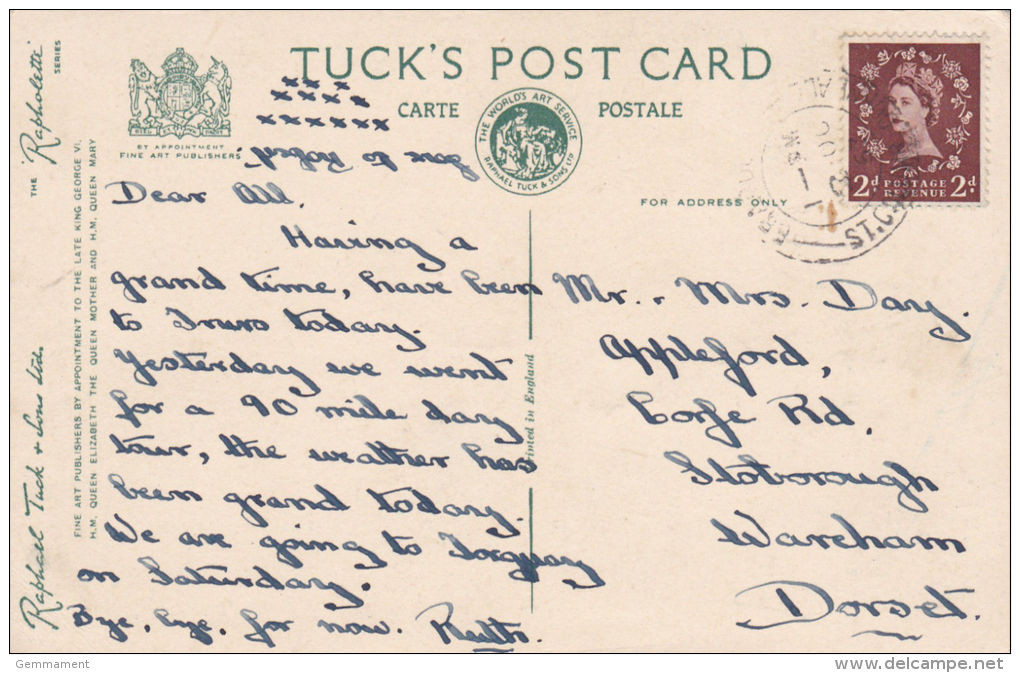 TUCK'S POST CARD
CARTE POSTALE
THE WORLD'S ART SERVICE
RAPHAEL TUCK & SONS LTD
BY APPOINTMENT
FINE ART PUBLISHERS
FOR ADDRESS ONLY
2d POSTAGE REVENUE 2d
ST.C
xxx
xxxxx
xxxxxxx
Dear All,
Having a
grand time, have been
to Truro today.
Yesterday we went
for a 90 mile day
tour, the weather has
been grand today.
We are going to Torquay
on Saturday.
Bye, bye, for now. Ruth.
Mr. + Mrs. Day.
Appleford,
Corfe Rd,
Stoborough
Wareham
Dorset.
Printed in England
THE "Raphotette" SERIES
Raphael Tuck & Sons Ltd.
FINE ART PUBLISHERS BY APPOINTMENT TO THE LATE KING GEORGE VI,
H.M. QUEEN ELIZABETH THE QUEEN MOTHER AND H.M. QUEEN MARY
Gemmament
delcampe.net